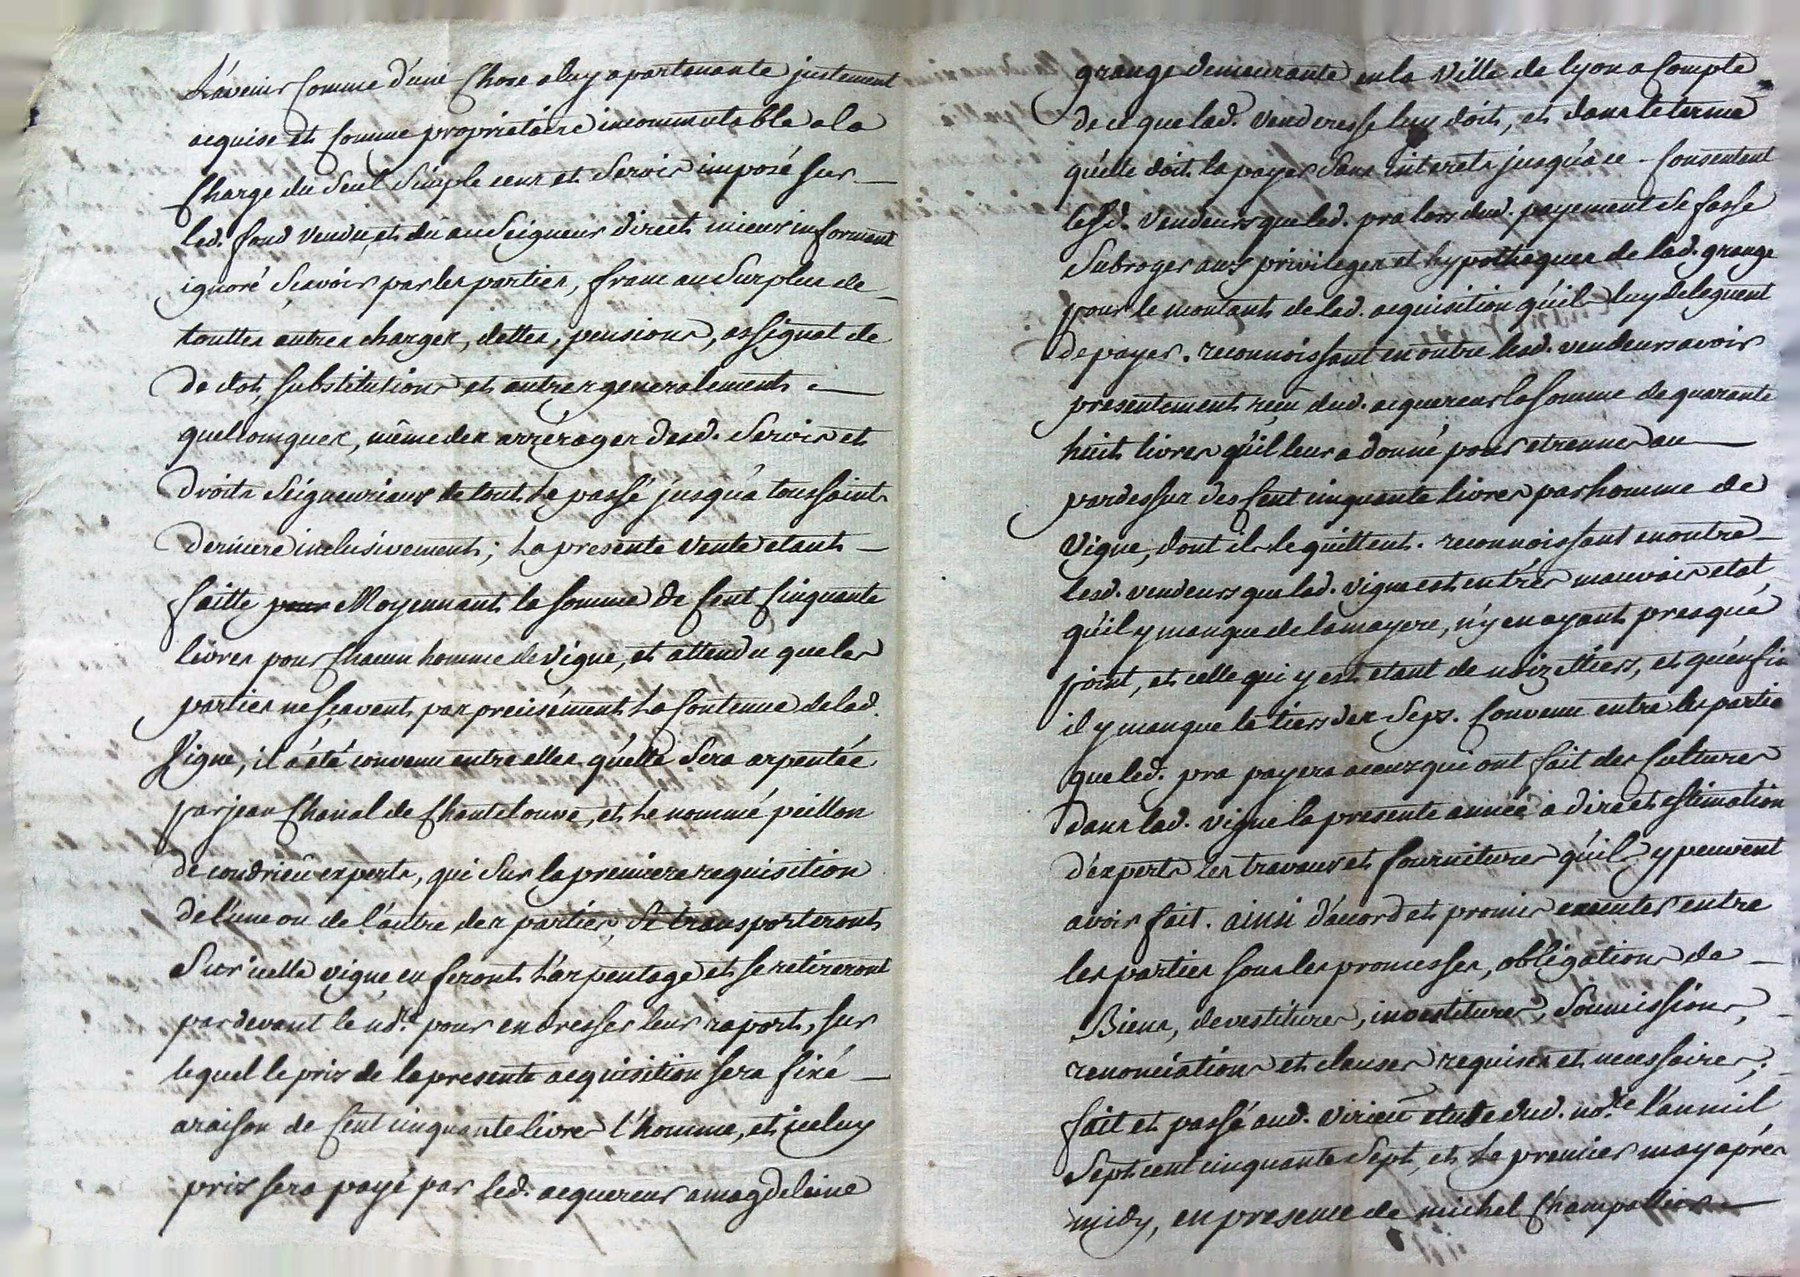 L'avenir Comme d'une Chose a luy apartenante justement
acquise et Comme propriétaire incommutable a la
Charge du Seul Simple cens et Servis imposé sur
led. fond vendu, et dû au Seigneur direct mieux informent
ignoré Sçavoir par les parties, franc au Surplus de
touttes autres charges, dettes, pensions, assignat de
de dot, Substitutions et autres generalement
quelconques, même des arrérages desd. Servis et
Droits Seigneuriaux de tout Le passé jusqu'a toussaint
derniere inclusivement; La presente Vente etant
faitte Moyennant la somme de Cent Cinquante
livres pour Chacun homme de vigne, et attendu que les
parties ne sçavent pas precisément La Contenue de lad.
Vigne, il a été convenu entre elles qu'elle Sera arpentée
par jean Chaval de Chantelouve, et Le nommé peillon
de condrieû experts, qui Sur la premiere requisition
de l'une ou de l'autre des parties, Se transporteront
Sur icelle vigne, en feront L'arpentage et se retireront
pardevant le nd.re pour en dresser leur raport, sur
lequel le prix de la presente acquisition sera fixé
a raison de Cent cinquante livres l'homme, et iceluy
prix sera payé par led. acquereur a magdeleine
grange demeurante en la Ville de lyon a Compte
de ce que lad. Venderesse luy doit, et dans le terme
qu'elle doit la payer Sans interets jusqu'a ce. Consentent
lesd. Vendeurs que led. pra lors dud. payement se fasse
Subroger aux privileges et hypotheques de lad. grange
pour le montant de lad. acquisition qu'ils luy deleguent
de payer. reconnoissant en outre lesd. vendeurs avoir
presentement reçu dud. acquereur la somme de quarante
huit livres qu'il leur a donné pour etrennes au
pardessus des Cent cinquante livres par homme de
Vigne, dont ils le quittent. reconnoissant en outre
lesd. vendeurs que lad. vigne est en très mauvais etat
qu'il y manque de la mayere, n'y en ayant presque
point, et celle qui y est etant de noizettiers, et qu'enfin
il y manque le tiers des Seps. Convenu entre les parties
que led. pra payera a ceux qui ont fait des Cultures
dans lad. vigne la presente année a dire et estimation
d'experts les travaux et fournitures qu'ils y peuvent
avoir fait. ainsi d'acord et promis executer entre
les parties sous les promesses, obligations de
Biens, devestitures, investitures, Soumissions,
renonciations et clauses requises et necessaires;
fait et passé aud. Virieu etude dud. no.re l'an mil
Sept cent cinquante Sept, et Le premier may après
midy, en presence de michel Champallier